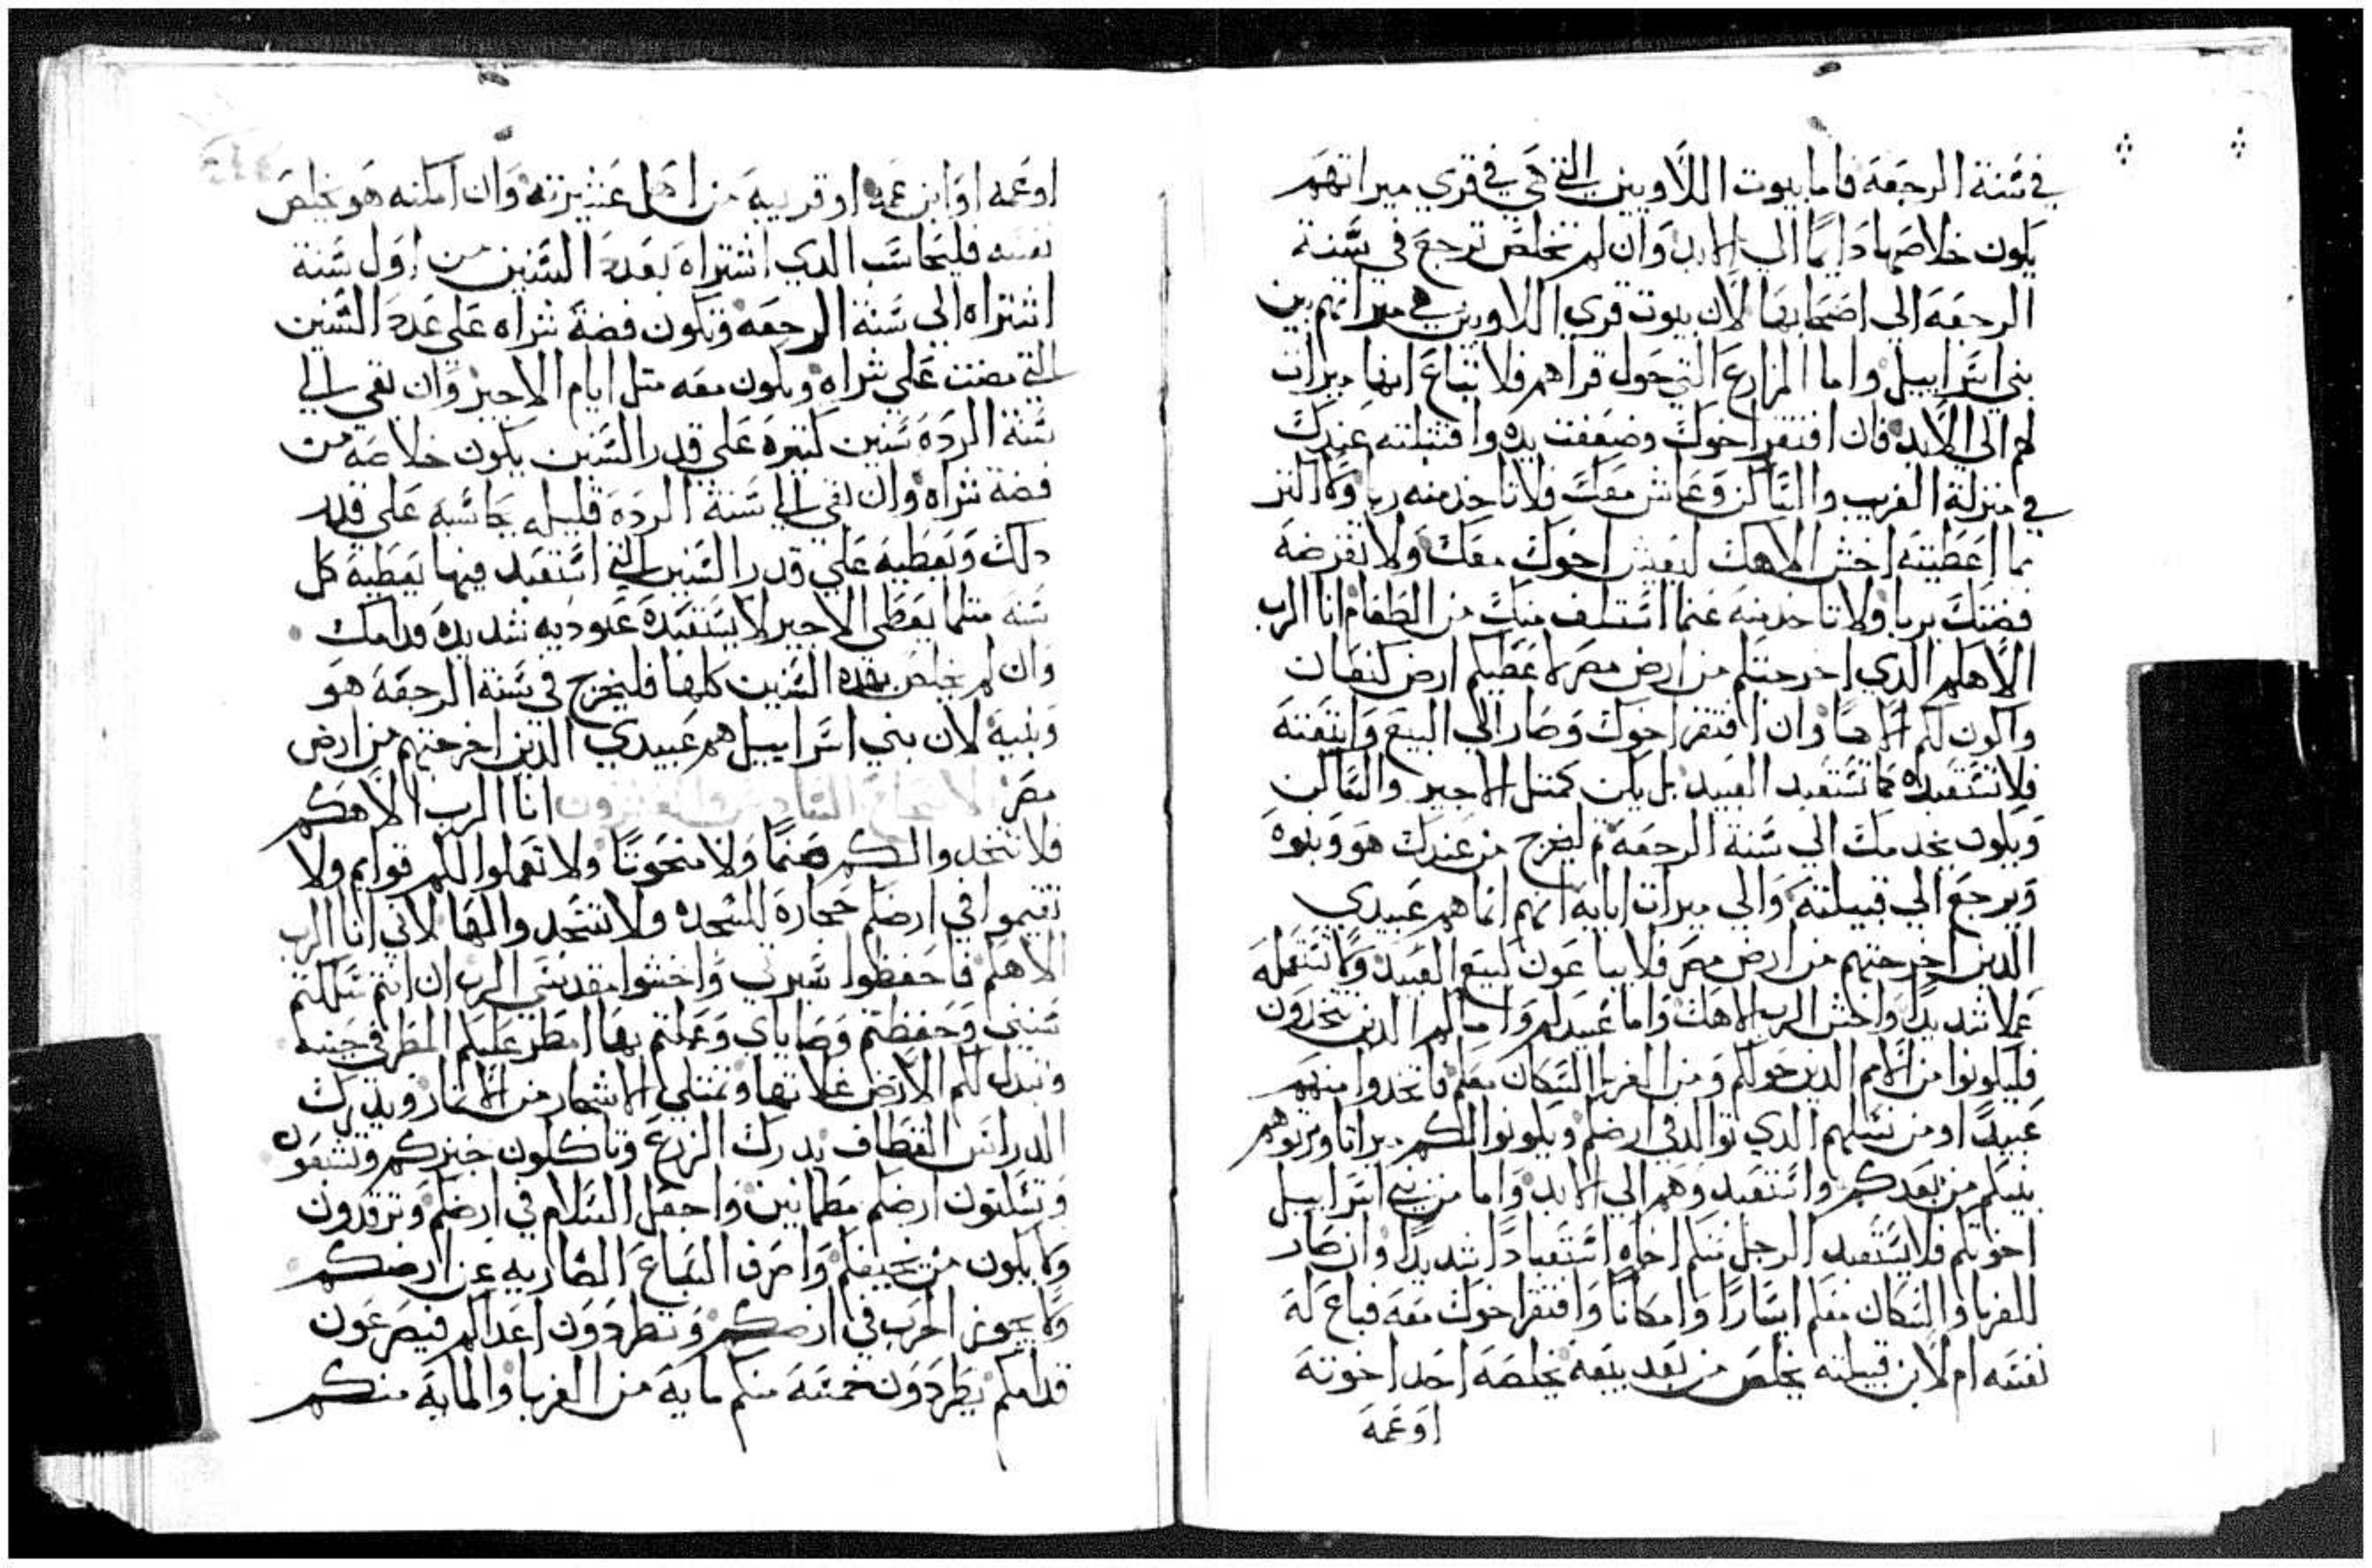 في سنة الرجعة فاما بيوت اللاويين التي هي في قري ميراتهم
يكون خلاصها دايما الي الابد وان لم تخلص ترجع في سنة
الرجعة الي اصحابها لان بيوت قري اللاويين هي ميراتهم بين
بني اسراييل واما المزارع التي حول قراهم فلا تباع انها ميرات
لهم الي الابد فان افتقر اخوك وضعفت يده واقتبلته عندك
في منزلة الغريب والساكن وعاش معك فلا تاخد منه ربا ولا اكتر
مما اعطيته اخش الاهك ليعيش اخوك معك ولا تقرضه
فضتك بربا ولا تاخد منه عنما استسلف منك من الطعام انا الرب
الاهكم الدي اخرجتكم من ارض مصر لاعطيكم ارض كنعان
واكون لكم الاها وان افتقر اخوك وصار الي البيع وابتعته
فلا تستعبده كما تستعبد العبيد بل يكن كمتل الاجير والساكن
ويكون يخدمك الي سنة الرجعة تم ليخرج من عندك هو وبنوه
ويرجع الي قبيلته والي ميرات ابايه انهم انما هم عبيدي
الدين اخرجتهم من ارض مصر فلا يباعون كبيع العبيد ولا تستعمله
عملا شديدا واخش الرب الاهك واما عبيدكم واماكم الدين تتخدون
فليكونوا من الامم الدين حولكم ومن الغربا السكان معكم فاتخدوا منهم
عبيدا او من نسلهم الدي توالد في ارضكم ويكونوا لكم ميراتا ويرتوهم
بنيكم من بعدكم واستعبدوهم الي الابد واما من بني اسراييل
اخوتكم فلا يستعبد الرجل منكم اخاه استعبادا شديدا وان صار
للغربا والسكان معكم ايسارا وامكانا وافتقر اخوك معه فباع له
نفسه ام لابن قبيلته يخلص من بعد بيعه يخلصه احد اخوته
او عمه
او عمه او ابن عمه او قريبه من اهل عشيرته وان امكنه هو يخلص
نفسه فليحاسب الدي اشتراه بعدد السنين من اول سنة
اشتراه الي سنة الرجعة وتكون فضة شراه علي عدد السنين
التي مضت علي شراه ويكون معه متل ايام الاجير وان بقي الي
سنة الردة سنين كتيره علي قدر السنين يكون خلاصه من
فضة شراه وان بقي الي سنة الردة قليله يحاسبه علي قدر
دلك ويعطيه علي قدر السنين التي استعبد فيها يعطيه كل
سنة متلما يعطي الاجير لا يستعبده عبوديه شديده قدامك
وان لم يخلص بهده السنين كلها فليخرج في سنة الرجعة هو
وبنيه لان بني اسراييل هم عبيدي الدين اخرجتهم من ارض
مصر الاصحاح السادس والعشرون انا الرب الاهكم
فلا تتخدوا لكم صنما ولا منحوتا ولا تعملوا لكم قوايم ولا
تقيموا في ارضكم حجارة للسجده ولا تسجدوا لها لاني انا الرب
الاهكم فاحفظوا سبوتي واخشوا مقدسي الرب ان انتم سلكتم
سنني وحفظتم وصاياي وعملتم بها امطر عليكم المطر في حينه
وتبدل لكم الارض غلاتها وتمتلي الاشجار من الاتمار ويدرك
الدراس القطاف يدرك الزرع وتاكلون خبزكم وتشبعون
وتسكنون ارضكم مطمانين واجعل السلام في ارضكم وترقدون
ولا يكون من يخيفكم واصرف السباع الضاريه عن ارضكم
ولا يجوز الحرب في ارضكم وتطردون اعداكم فيصرعون
قدامكم يطردون خمسه منكم مايه من الغربا والمايه منكم